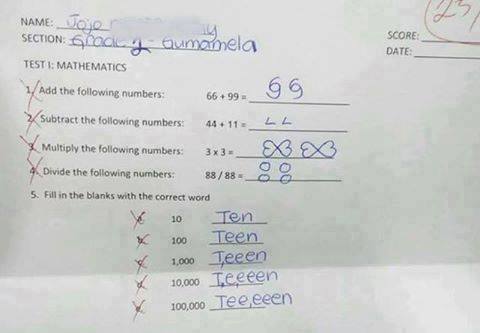 23/
NAME: Jojo
SECTION: Grade 7 - Gumamela
SCORE:
DATE:
TEST I: MATHEMATICS
1. Add the following numbers: 66 + 99 =
2. Subtract the following numbers: 44 + 11 = LL
3. Multiply the following numbers: 3 x 3 = 
4. Divide the following numbers: 88 / 88 =
5. Fill in the blanks with the correct word
10 Ten
100 Teen
1,000 Teeen
10,000 T,eeeen
100,000 Tee,eeen